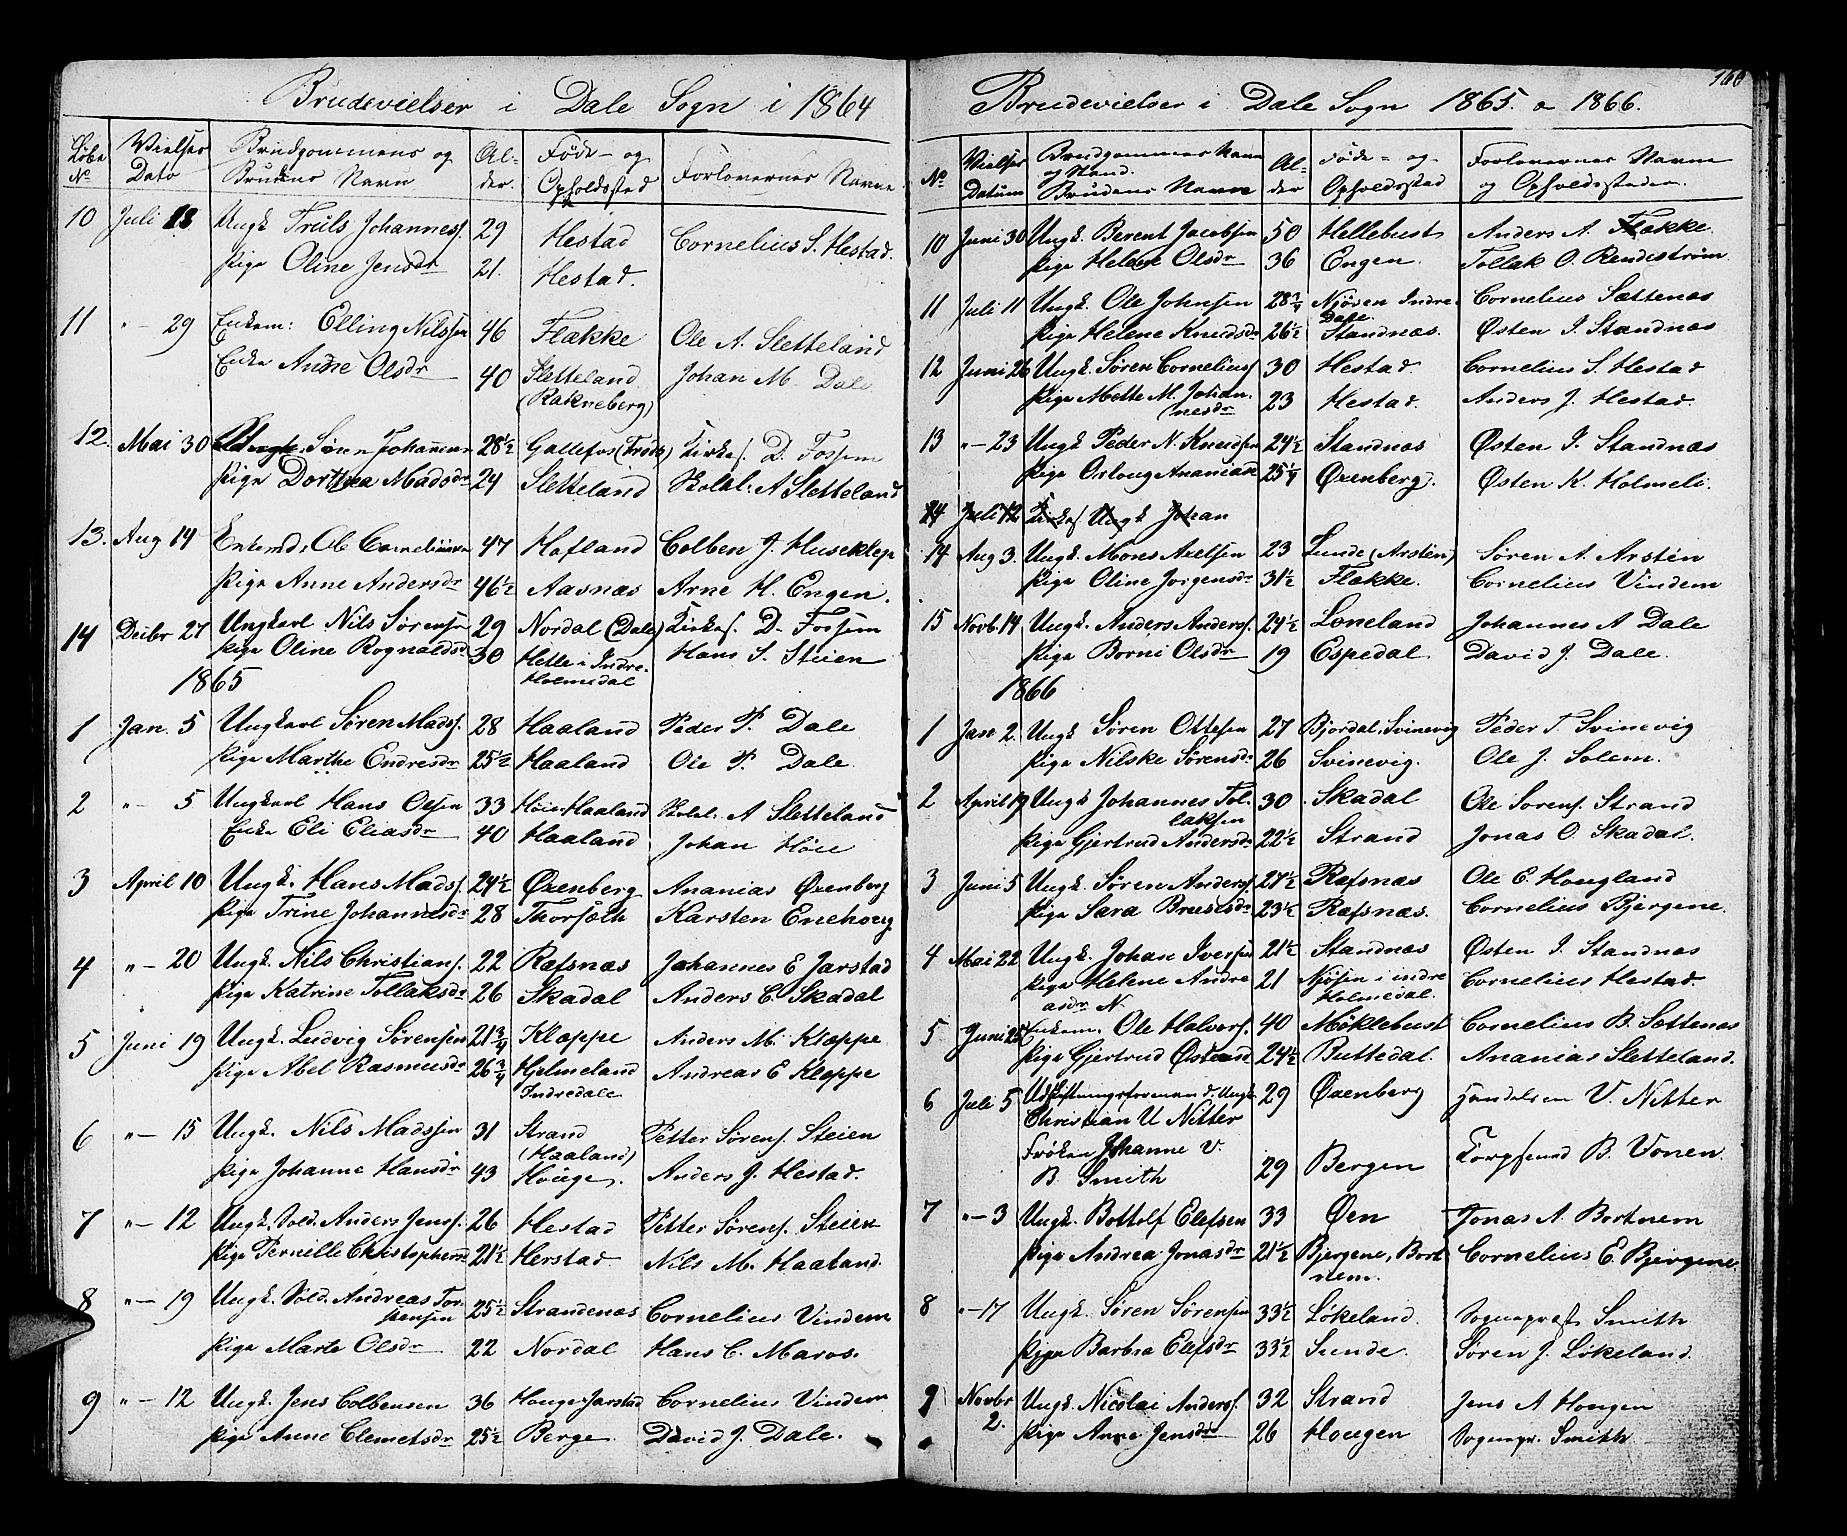 Brudevielser i Dale Sogn i 1864
Løbe No | Vielses Dato | Brudgommens og Brudens Navn | Alder. | Føde- og Opholdsstad | Forlovernes Navne
10 Juli 18 Ungk Truls Johanness. 29 Hestad Cornelius S. Hestad.
Pige Oline Jensdr 21. Hestad.
11 "- 29 Enkem: Elling Nilssen 46 Flække Ole A. Sletteland
Enke Anne Olsdr 40 Sletteland (Rakneberg) Johan M. Dale
12. Mai 30 Johannessen 28½ Gallefos Kirkes. D. Fossem
Pige Dorthea Madsdr 24 Sletteland Skolel. A Sletteland
13. Aug 14 Enkemd: Ole Corneliussen 47 Hafland Colben J. Huseklep
Pige Anne Andersdr 46½ Aasnæs Arne H. Engen.
14 Decbr 27 Ungkarl Nils Sørensen 29 Nordal (Dale) Kirkes. D. Fossem
Pige Oline Rognaldsd 30 Hetle i Indre Holmedal Hans S. Steien
1865
1 Jan. 5 Ungkarl Søren Madss. 28 Haaland Peder P. Dale
Pige Marthe Endresdr 25½ Haaland Ole P. Dale
2 "- 5 Ungkarl Hans Olsen 33 Høien Haaland Skolel. A Sletteland
Enke Eli Eliasdr 40 Haaland Johan Høie
3 April 10 Ungk. Hans Madss. 24½ Øxenberg Ananias Øxenberg
Pige Trine Johannesdr 28 Thorsæth Karsten Enehoug
4 "- 20 Ungk. Nils Christians. 22 Ræfsnæs Johannes E Jarstad
Pige Katrine Tollaksdr 26 Skadal Anders C. Skadal
5 Juni 19 Ungk. Ludvig Sørensen 21¾ Klæppe Anders M. Klæppe
Pige Abel Rasmusdr 26¾ Hjelmeland Indredale Andreas E Kleppe
6 "- 15 Ungk. Nils Madssen 31 Strand (Haaland) Petter Sørens. Steien
Pige Johanne Hansdr 43 Houge. Anders J. Hestad.
7 "- 12 Ungk. Sold. Anders Jenss. 26 Hestad Petter Sørens. Steien
Pige Pernille Christophersd 21½ Herstad Nils M. Haaland.
8 "- 19 Ungk. Sold. Andreas Torgersen 25½ Strandenæs Cornelius Vindem
Pige Marte Olsdr 22 Nordal Hans C. Maros.
9 "- 12 Ungk. Jens Colbensen 36 Houge Jarstad Cornelius Vindem
Pige Anne Clemetsdr 25½ Berge. David J. Dale.
160
Brudevielser i Dale Sogn 1865. o 1866.
No | Vielses Datum | Brudgommens Navn og Stand. Brudens Navn | Alder | Føde- og Opholdsstad | Forlovernes Navne og Opholdssteder.
10 Juni 30 Ungk. Berent Jacobsen 50 Hellebust Anders A. Flække
Pige Helene Olsdr 36 Engen. Tollak O. Rendestrøm
11 Juli 11 Ungk. Ole Johnsen 28¾ Njøsen Indre Dale Cornelius Sættenæs
Pige Helene Knudsdr 26½ Standnæs. Østen J. Standnæs
12 Juni 26 Ungk. Søren Cornelius. 30 Hestad Cornelius S. Hestad
Pige Mette M. Johannesdr 23 Hestad. Anders J. Hestad.
13 "- 23 Ungk Peder N. Knudsen 24½ Standnæs Østen J. Standnæs
Pige Orloug Ananiasd 25¼ Øxenberg. Østen K. Holmeli.
14 Juli 12 Kirkes Ungk Johan
14 Aug 3. Ungk. Mons Axelsen 23 Lunde (Arstén) Søren A. Arstén
Pige Oline Jorgensdr 31½ Flække. Cornelius Vindem
15 Novb. 14 Ungk. Anders Anders. 24½ Løneland Johannes A Dale
Pige Borni Olsdr 19 Espedal. David J. Dale.
1866
1 Jan 2. Ungk Søren Ottesen 27 Bjordal, Svinevig Peder T. Svinevig
Pige Nilske Sørensdr 26 Svinevig. Ole J. Solem.
2 April 19 Ungk Johannes Tollaksen 30 Skadal Ole Sorens. Strand
Pige Gjertrud Andersdr 22½ Strand Jonas O. Skadal.
3 Juni 5 Ungk. Søren Anders. 27½ Ræfsnæs Ole E. Hougland
Pige Sara Brusesdr 23½ Ræfsnæs. Cornelius Bjergene.
4 Mai 22 Ungk. Johan Iversen 21½ Standnæs Østen J. Standnæs
Pige Helene Andreasdr N. 21 Njøsen i indre Holmedal. Cornelius Hestad
5 Juni 25 Enkem. Ole Halvors. 40 Møklebust Cornelius B. Sættenæs
Pige Gjertrud Østensd 24½ Buttedal. Ananias Sletteland.
6 Juli 5 Udskiftningsforman d. Ungk. Christian U Nitter 29 Øxenberg Handelsm V. Nitter
Frøken Johanne V. B. Smith 29 Bergen B. Vonen.
7 "- 3 Ungk. Bottolf Elefsen 33 Øen Jonas A. Bortnem
Pige Andrea Jonasdr 21½ Bjergene, Bortnem. Cornelius E. Bjergene
8 "- 17 Ungk. Søren Sørensen 33½ Løkeland. Sognepræst Smith
Pige Barbra Elefsdr 33½ Sunde. Søren J. Løkeland.
9 Novbr 2. Ungk. Nicolai Anders. 32 Strand Jens A Hougen
Pige Anne Jensdr 26 Hougen Sognepr. Smith